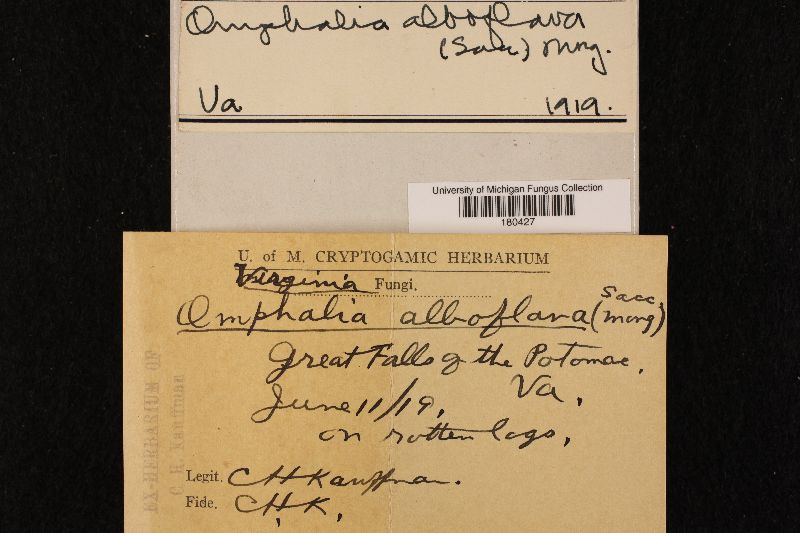 Omphalia alboflava
(Sacc) Morg.
Va 1919.
University of Michigan Fungus Collection
180427
U. of M. CRYPTOGAMIC HERBARIUM
Virginia Fungi.
Omphalia alboflava (Sacc. Morg)
Great Falls of the Potomac,
Va,
June 11/19,
on rotten logs,
Legit. CHKauffman.
Fide. C.H.K,
EX-HERBARIUM OF
C. H. Kauffman